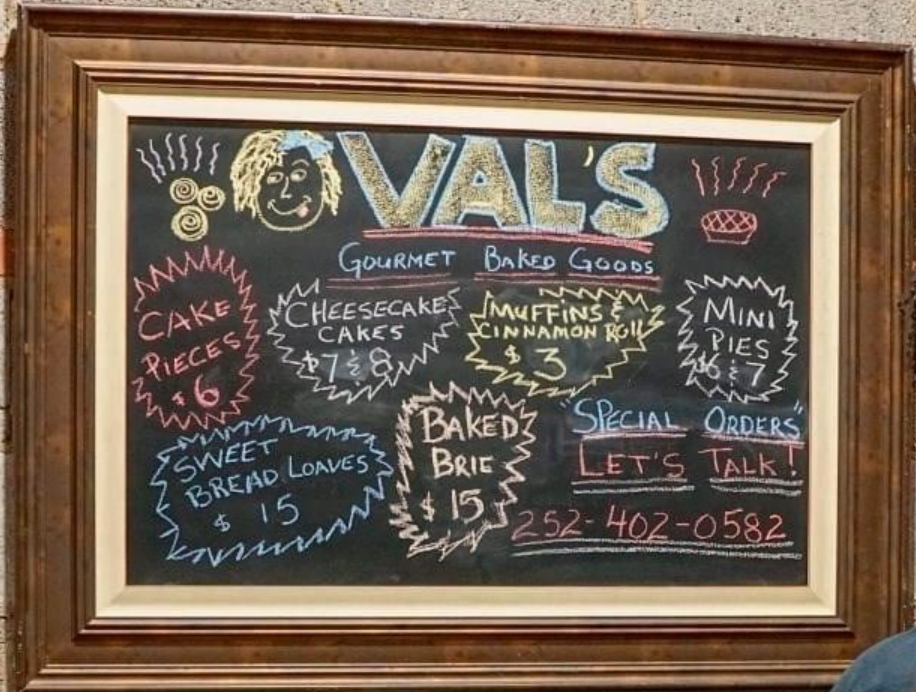 VAL'S
GOURMET BAKED GOODS
CAKE
PIECES
$6
CHEESECAKE
CAKES
$7 & 8
MUFFINS &
CINNAMON ROll
$3
MINI
PIES
$6 & 7
SWEET
BREAD LOAVES
$ 15
BAKED
BRIE
$ 15
"SPECIAL ORDERS"
LET'S TALK!
252-402-0582